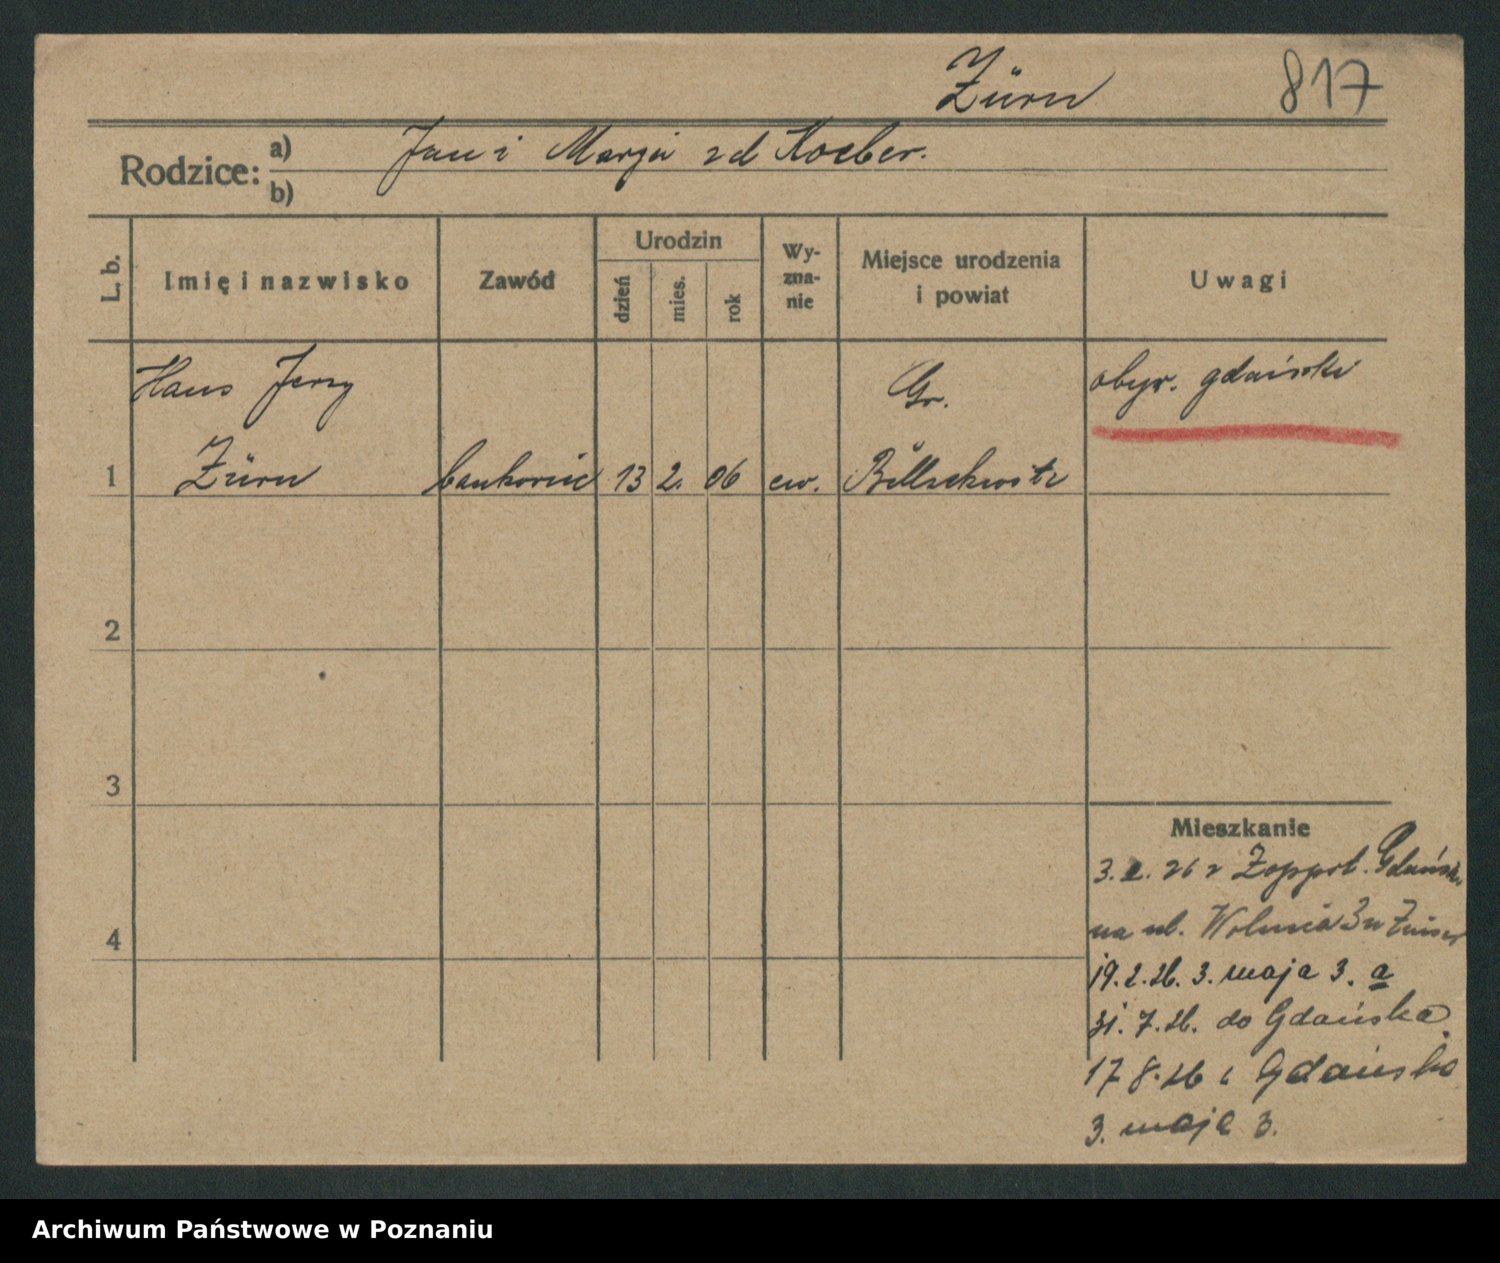 Zürn 817
Rodzice: a) Jan i Marja zd Koeber.
b)
L. b. Imię i nazwisko Zawód Urodzin dzień mies. rok Wyznanie Miejsce urodzenia i powiat Uwagi
Hans Jerzy Gr. obyw. gdański
1 Zürn bankowiec 13 2. 06 ew.
2
3
Mieszkanie
3. 2. 26 z Zoppot. Gdańsk
4 na ul. 3
19. 2. 26. 3. maja 3. a
31. 7. 26. do Gdańska.
17 8. 26 z Gdańska
3. maja 3.
Archiwum Państwowe w Poznaniu